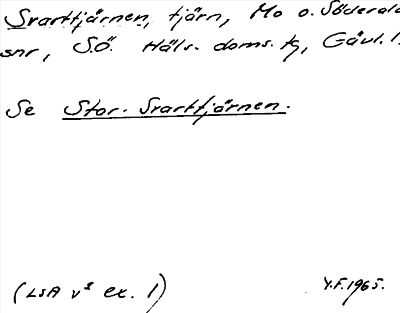 Svarttjärnen, tjärn, Mo o. Söderala
snr, S.Ö. Häls. doms. tg, Gävl. l.
Se Stor-Svarttjärnen.
(LSA v³ ex. 1) Y.F. 1965.